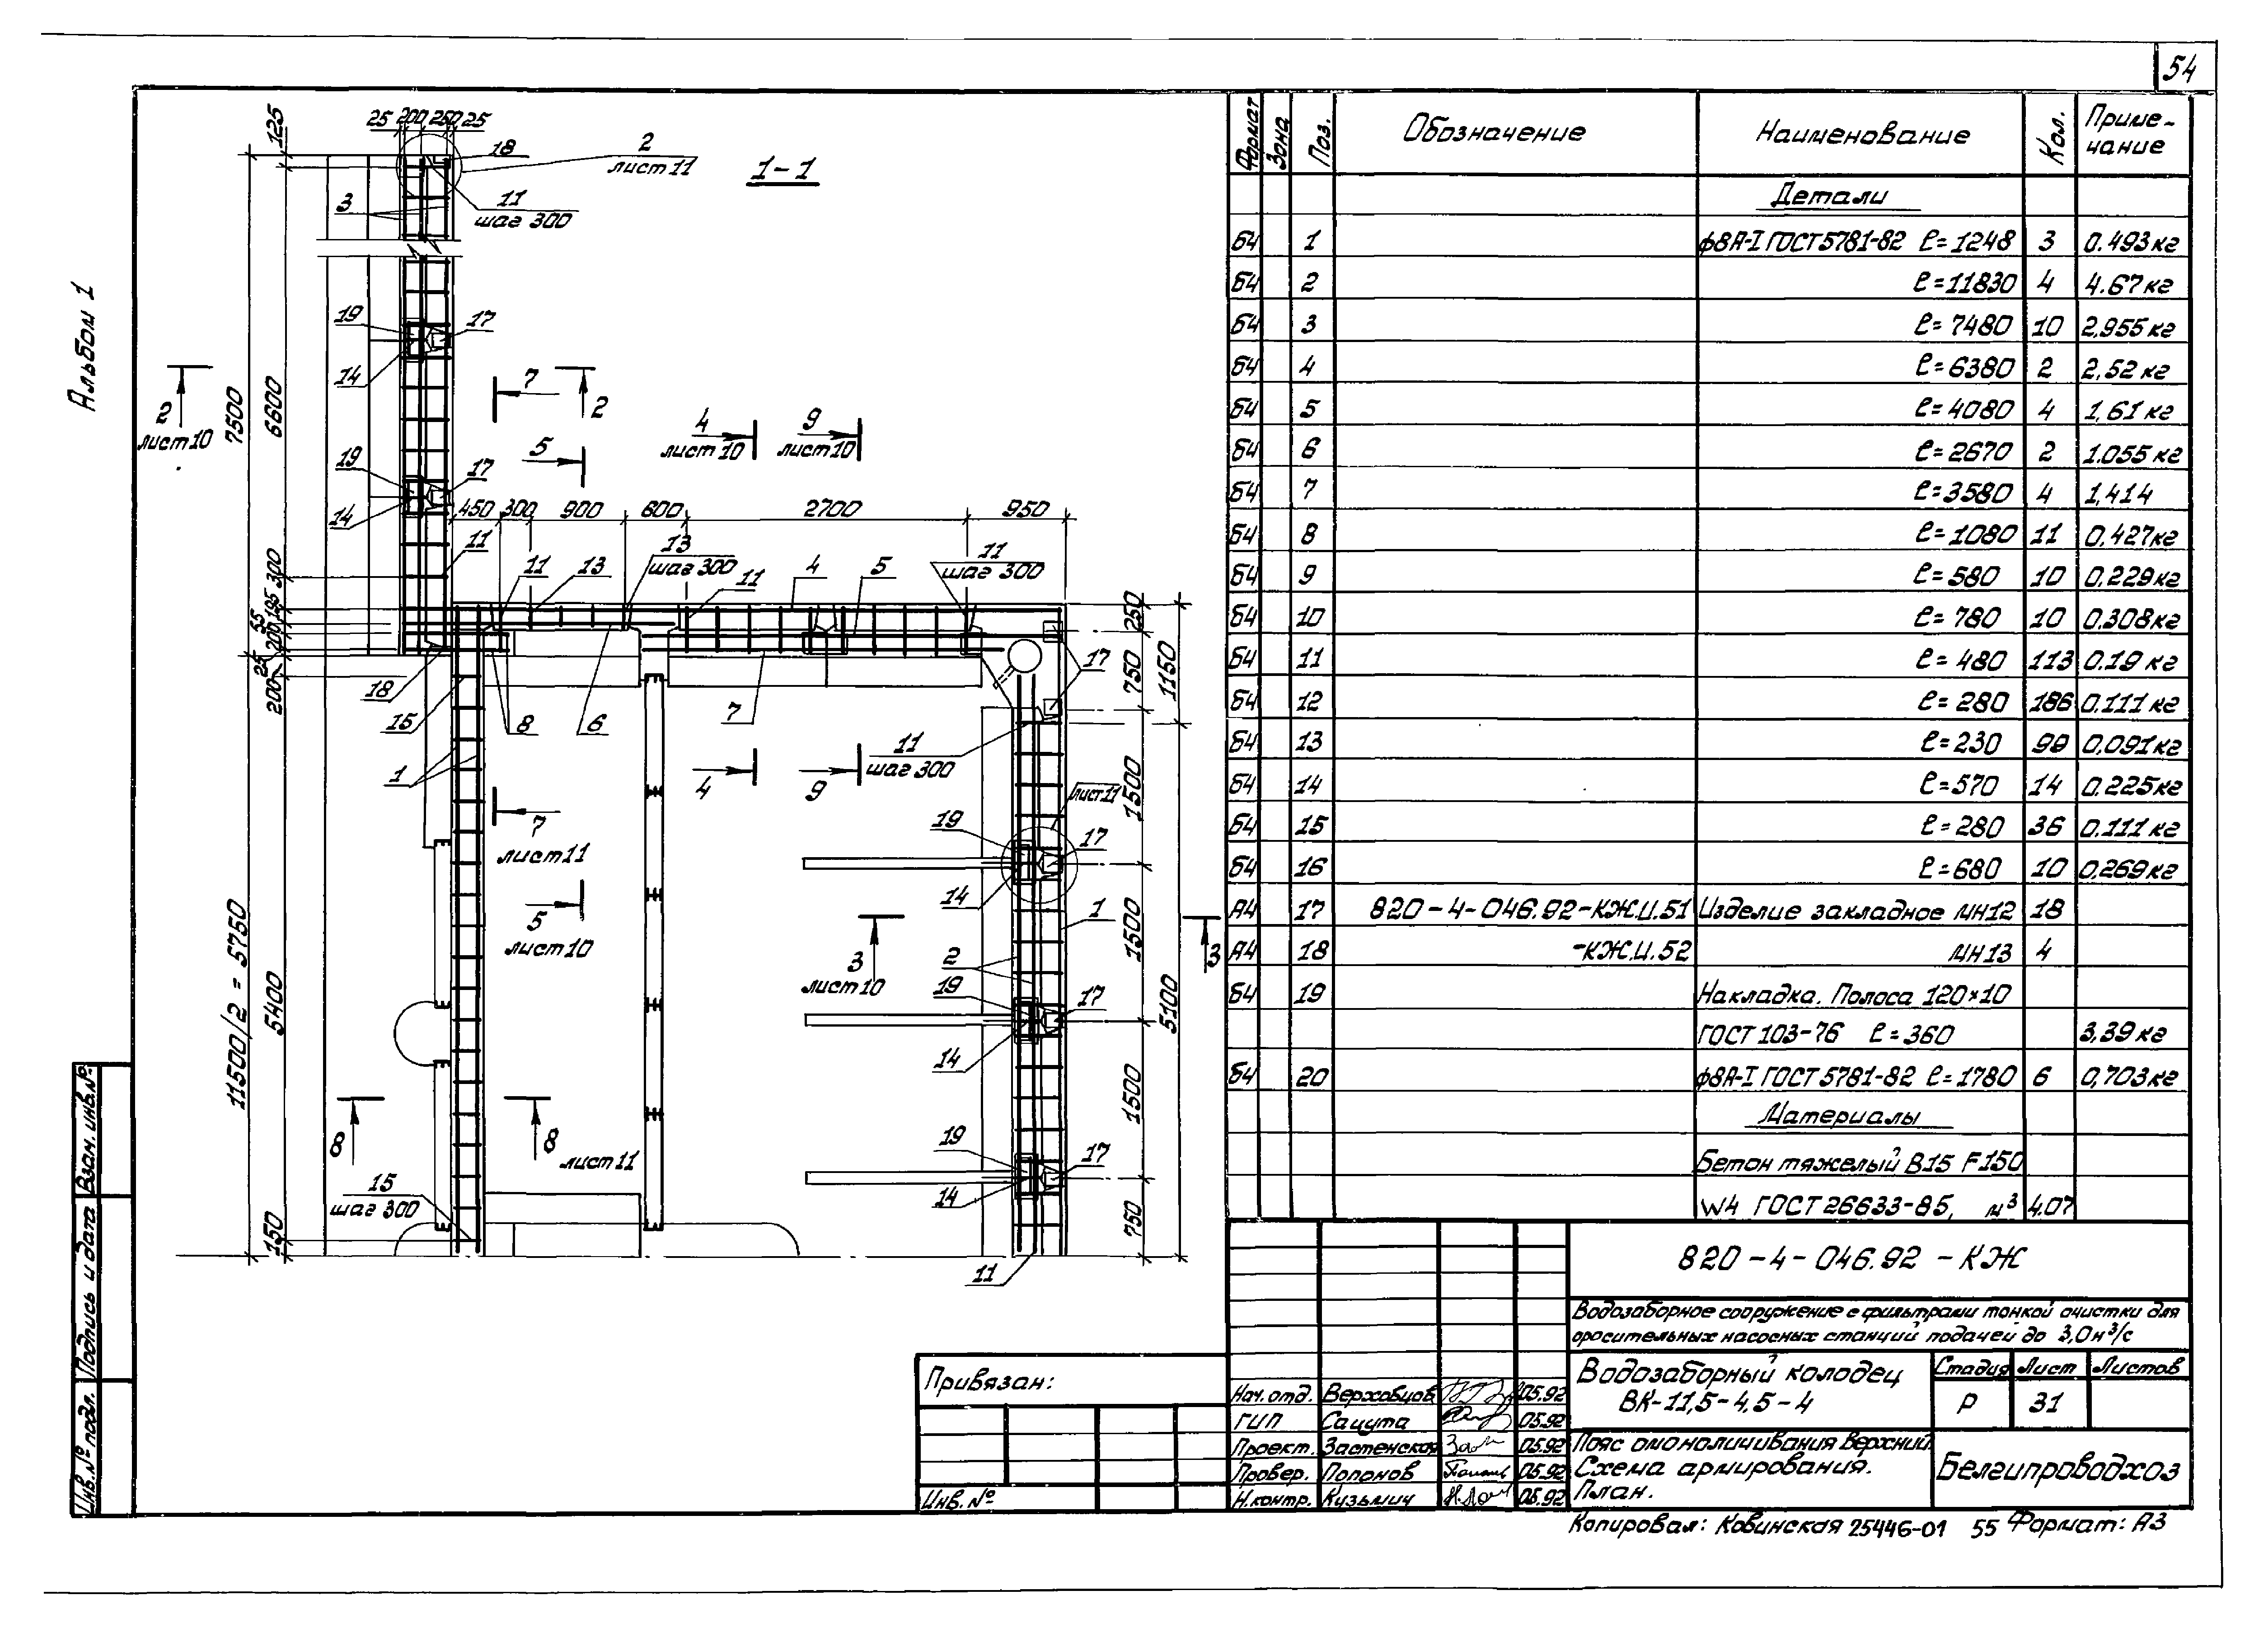 54
Альбом 1
1-1
25 200 250 25
125
18
2
лист 11
11
шаг 300
3
7500
6600
19
17
14
2
лист 10
2
7
5
4
лист 10
9
лист 10
19
17
14
450 300 900 600 2700 950
11
11
13
13
шаг 300
11
4
5
11
шаг 300
300
195
55
200
25
200
18
15
8
6
7
17
250
750
1150
1
4
9
11
шаг 300
лист 11
1500
7
лист 11
5
лист 10
19
17
14
1
2
3
лист 10
3
1500
19
17
14
5100
11500/2 = 5750
5400
8
8
лист 11
15
шаг 300
150
19
17
14
1500
750
11
Формат Зона Поз. Обозначение Наименование Кол. Приме-
чание
Детали
БЧ 1 ф8А-I ГОСТ 5781-82 ℓ=1248 3 0.493кг
БЧ 2 ℓ=11830 4 4.67кг
БЧ 3 ℓ=7480 10 2,955кг
БЧ 4 ℓ=6380 2 2,52кг
БЧ 5 ℓ=4080 4 1,61кг
БЧ 6 ℓ=2670 2 1.055кг
БЧ 7 ℓ=3580 4 1,414
БЧ 8 ℓ=1080 11 0,427кг
БЧ 9 ℓ=580 10 0,229кг
БЧ 10 ℓ=780 10 0.308кг
БЧ 11 ℓ=480 113 0.19кг
БЧ 12 ℓ=280 186 0.111кг
БЧ 13 ℓ=230 99 0.091кг
БЧ 14 ℓ=570 14 0.225кг
БЧ 15 ℓ=280 36 0.111кг
БЧ 16 ℓ=680 10 0,269кг
А4 17 820-4-046.92-КЖ.И.51 Изделие закладное МН12 18
А4 18 -КЖ.И.52 МН13 4
БЧ 19 Накладка. Полоса 120×10
ГОСТ 103-76 ℓ=360 3,39кг
БЧ 20 ф8А-I ГОСТ 5781-82 ℓ=1780 6 0,703кг
Материалы
Бетон тяжелый В15 F150
W4 ГОСТ 26633-85, м³ 4.07
820-4-046.92-КЖ
Водозаборное сооружение с фильтрами тонкой очистки для
оросительных насосных станций подачей до 3,0 м³/с
Водозаборный колодец
ВК-11,5-4,5-4
Стадия Лист Листов
Р 31
Пояс омоноличивания верхний.
Схема армирования.
План.
Белгипроводхоз
Нач. отд. Верховцов 05.92
ГИП Сацута 05.92
Проект. Застенская 05.92
Провер. Попанов 05.92
Н.контр. Кузьмич 05.92
Привязан:
Инв. №
Взам. инв. №
Подпись и дата
Инв. № подл.
Копировал: Ковинская 25446-01 55 Формат: А3